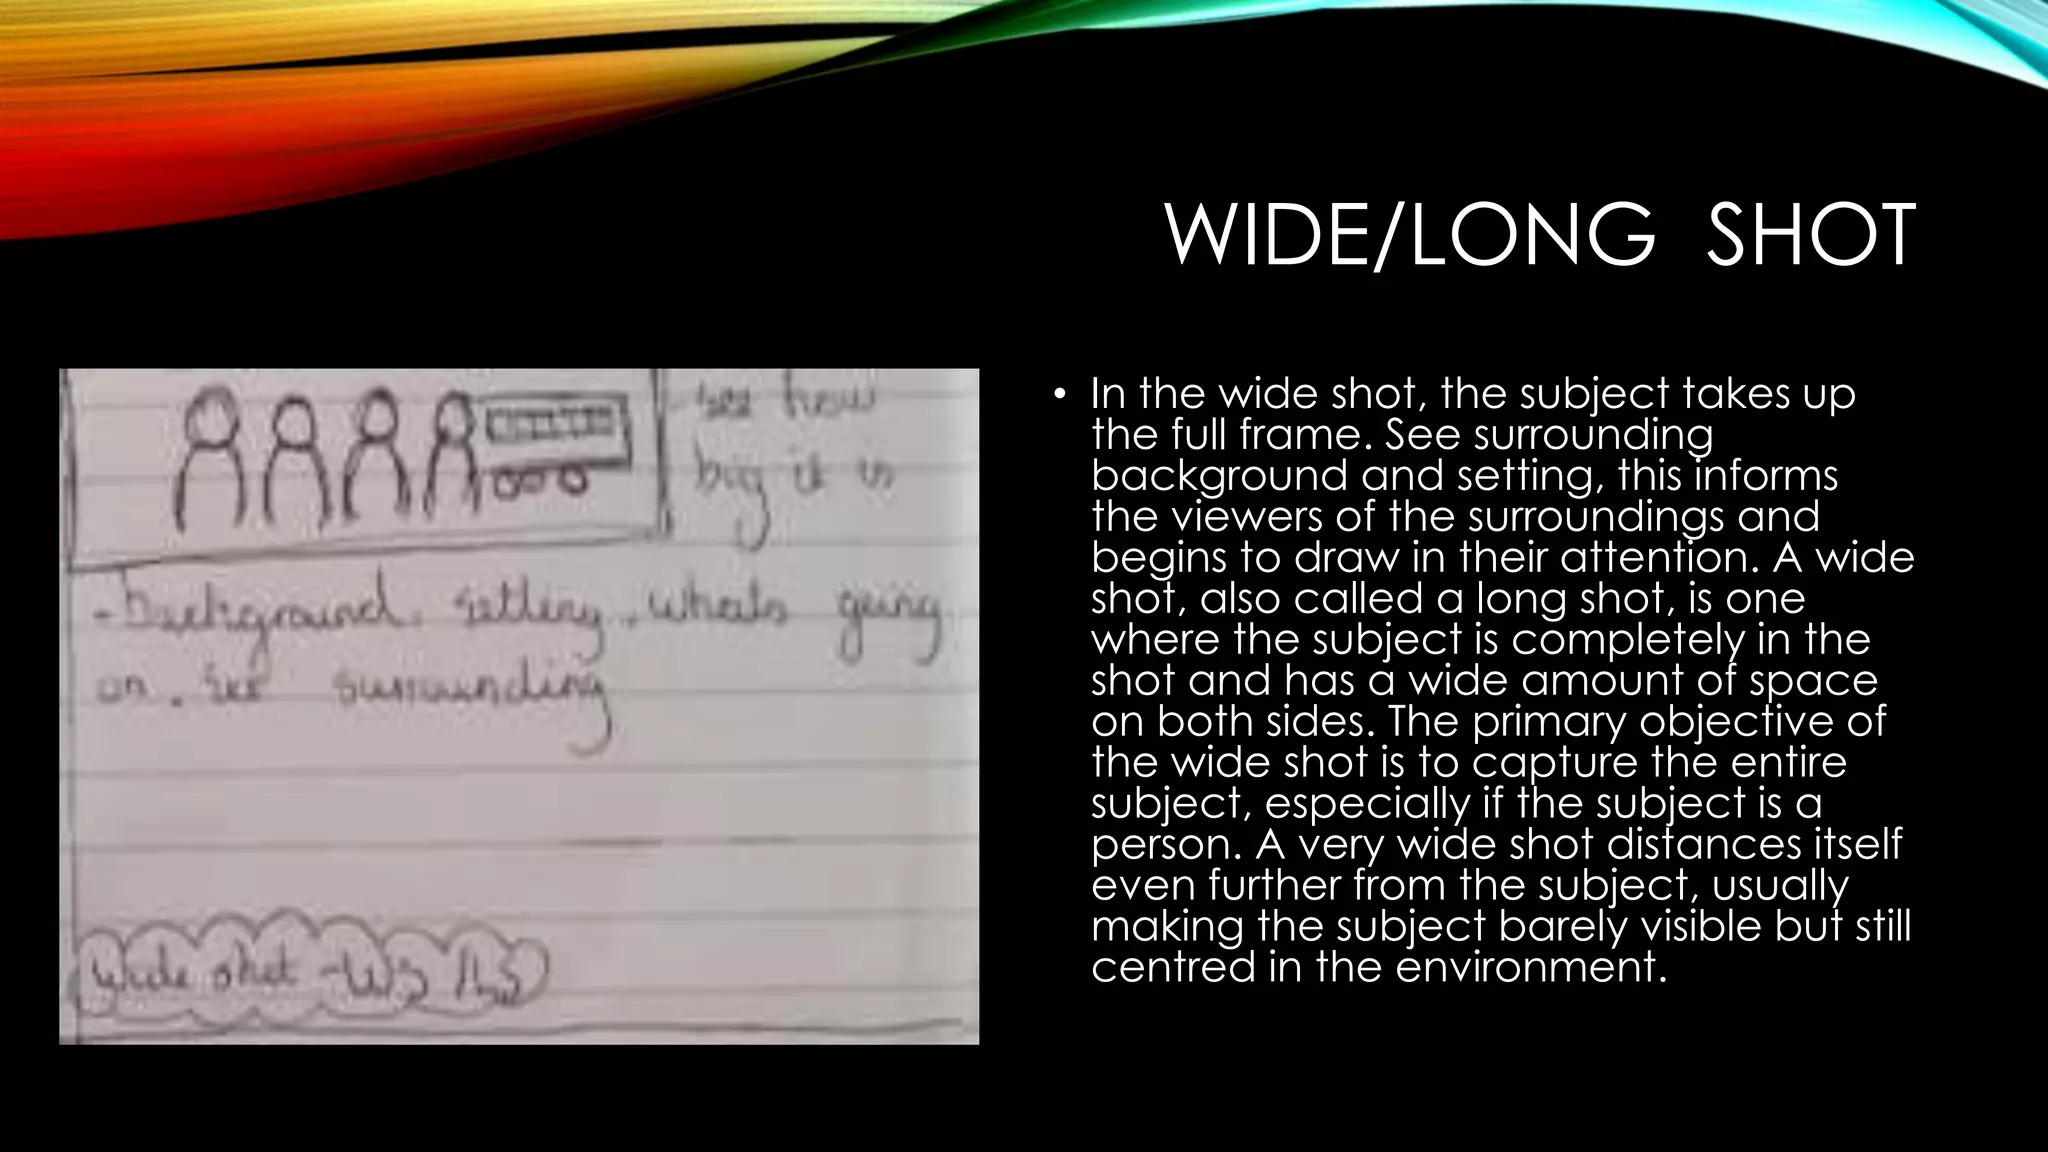 WIDE/LONG SHOT
see how
big it is
-background. setting. whats going
on. see surrounding
wide shot - WS /LS
• In the wide shot, the subject takes up
the full frame. See surrounding
background and setting, this informs
the viewers of the surroundings and
begins to draw in their attention. A wide
shot, also called a long shot, is one
where the subject is completely in the
shot and has a wide amount of space
on both sides. The primary objective of
the wide shot is to capture the entire
subject, especially if the subject is a
person. A very wide shot distances itself
even further from the subject, usually
making the subject barely visible but still
centred in the environment.